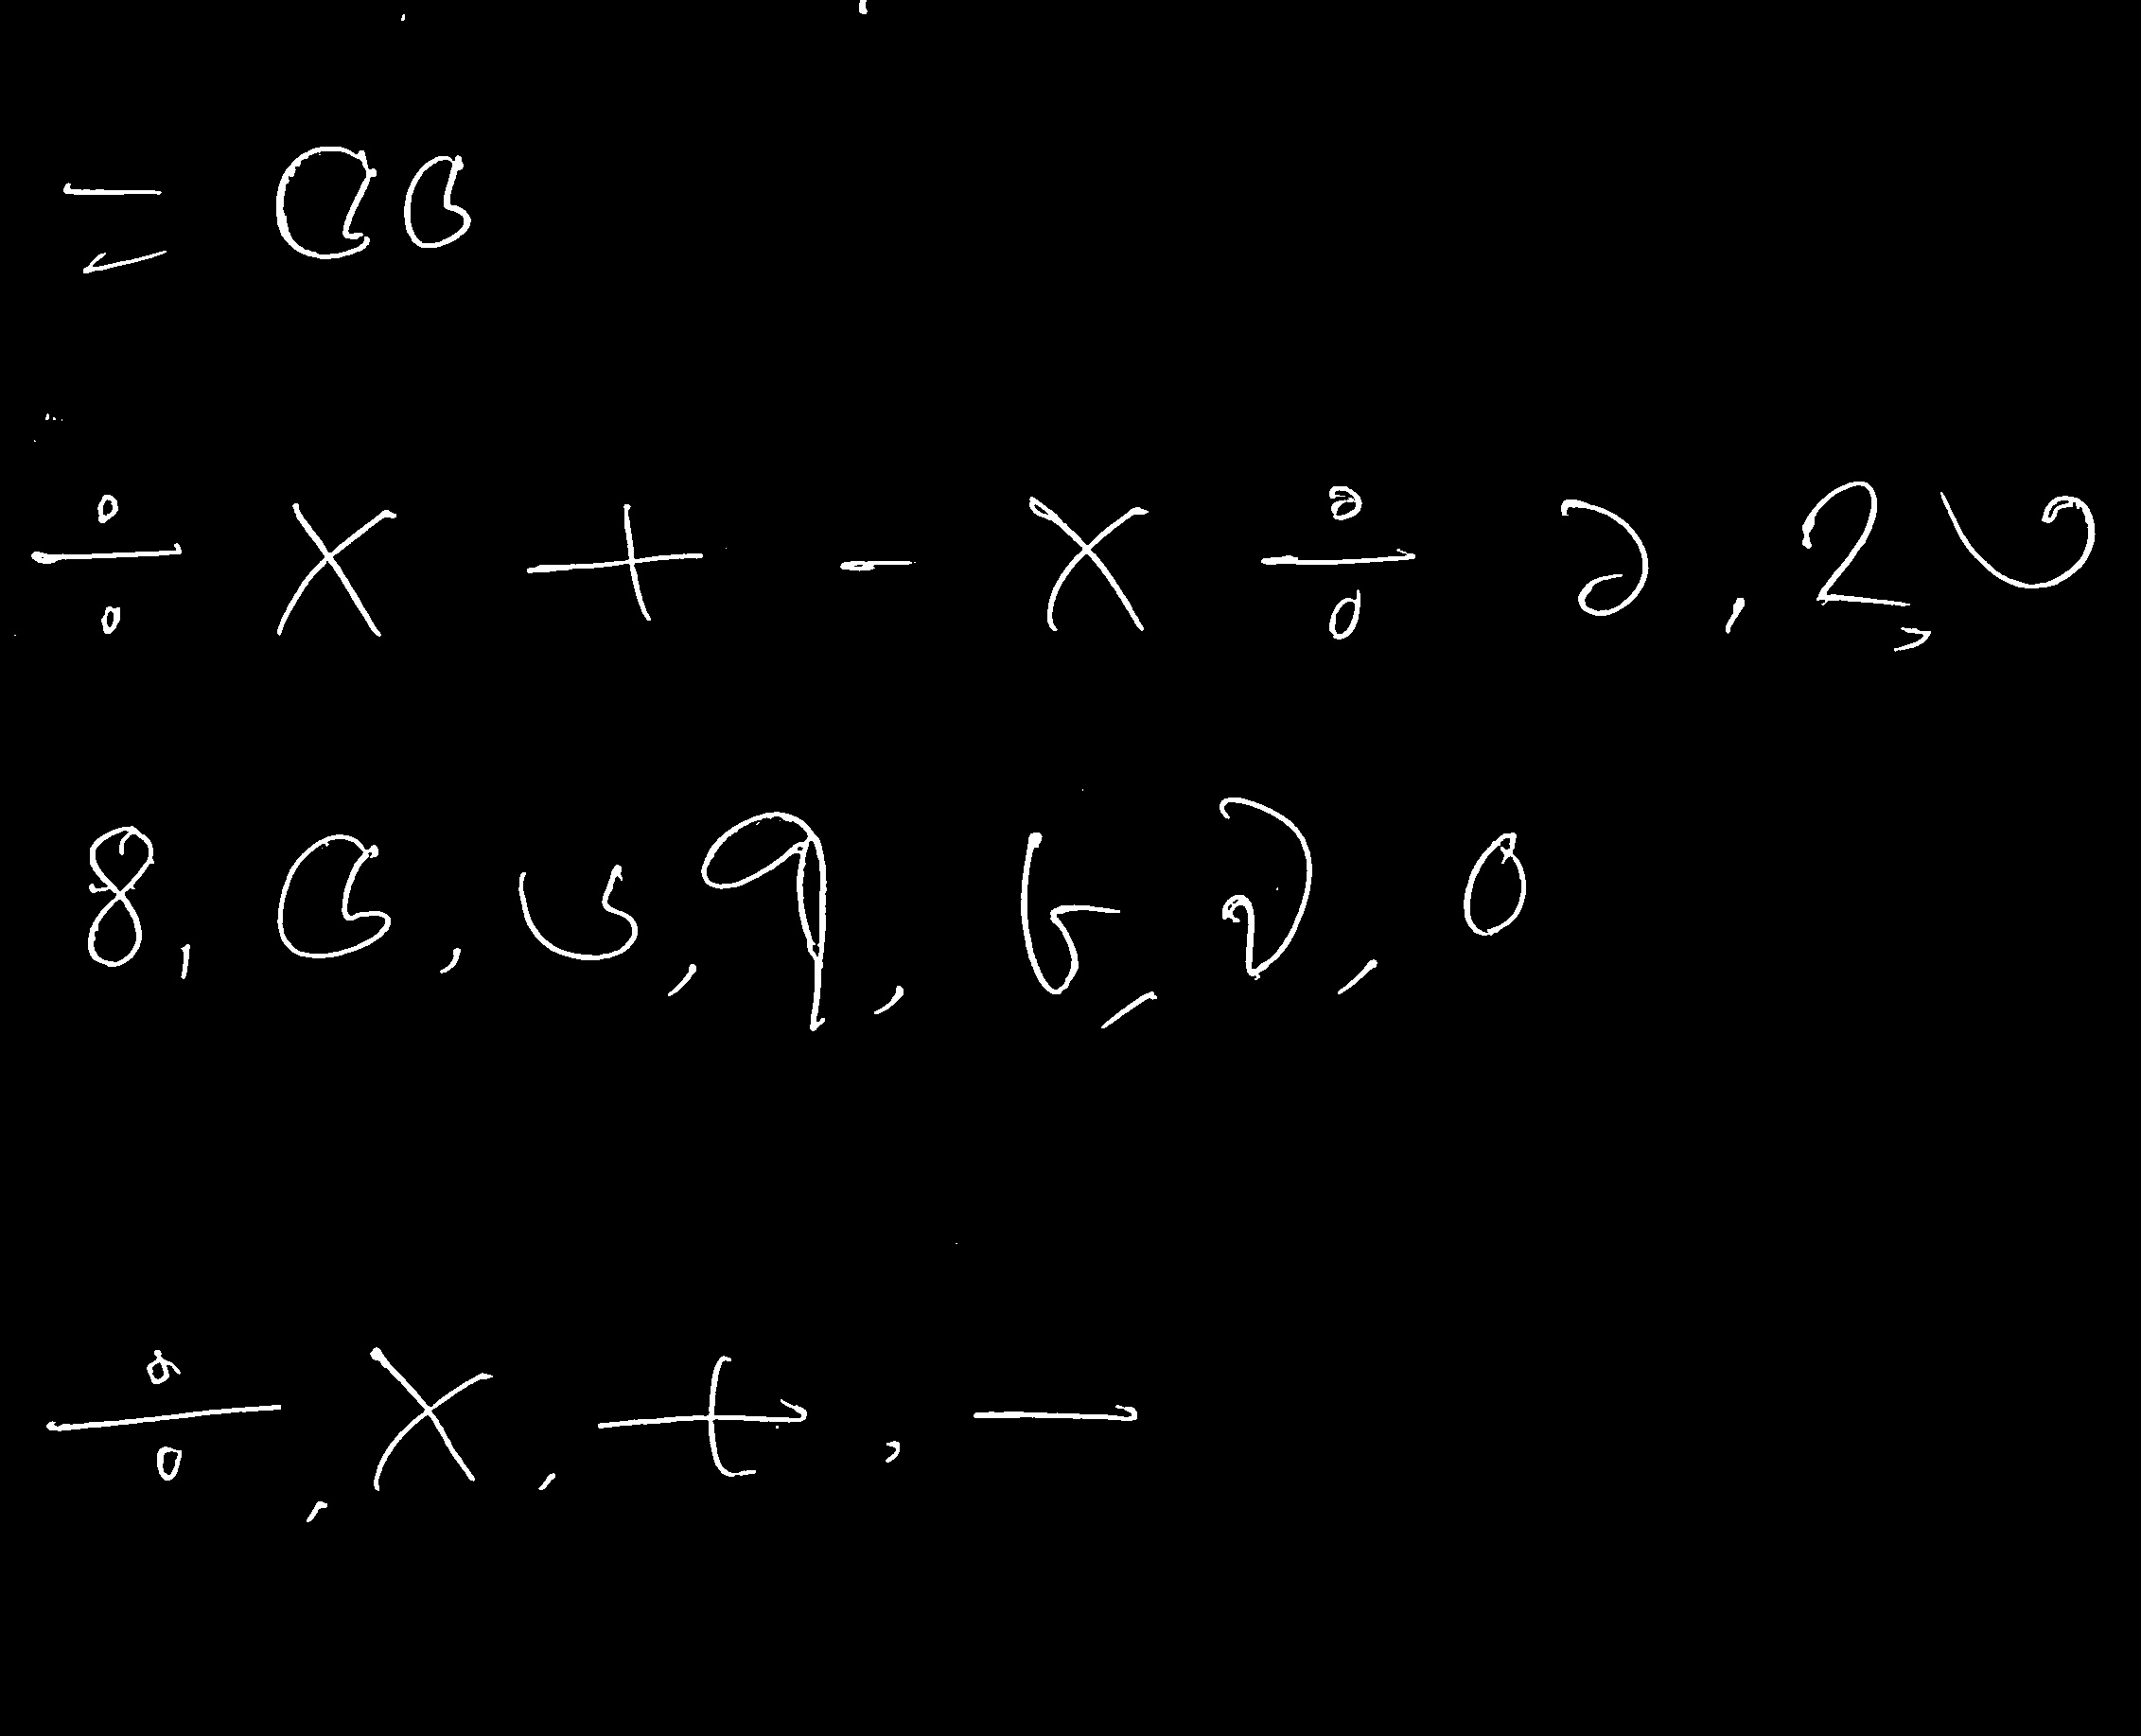 = ৫৫
÷ × + - × ÷ ১, ২, ৩
৪, ৫, ৬, ৭, ৮, ৯, ০
÷, ×, +, -